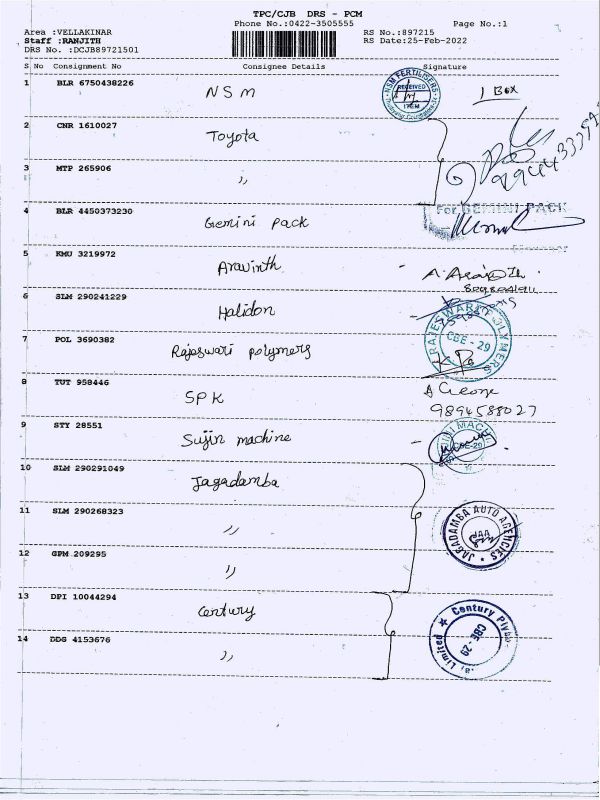 TPC/CJB DRS - PCM
Phone No.:0422-3505555 Page No.:1
Area :VELLAKINAR RS No.:897215
Staff :RANJITH RS Date:25-Feb-2022
DRS No. :DCJB89721501
S No Consignment No Consignee Details Signature
1 BLR 6750438226 NSM 1 Box
NSM FERTILISERS
RECEIVED
ITEM
2 CNR 1610027 Toyota
3 MTP 265906 "
4 BLR 4450373230 Gemini pack
For GEMINI PACK
5 KMU 3219972 Aravinth
6 SLM 290241229 Halidon
7 POL 3690382 Rajeswari polymers
RAJESWARI POLYMERS
CBE - 29
8 TUT 958446 SPK
George
9894588027
9 STY 28551 Sujin machine
CBE-29
10 SLM 290291049 Jagadamba
11 SLM 290268323 "
JAGADAMBA AUTO AGENCIES
JAA
12 GPM 209295 "
13 DPI 10044294 Century
Century Ply
CBE - 29
14 DDG 4153676 "